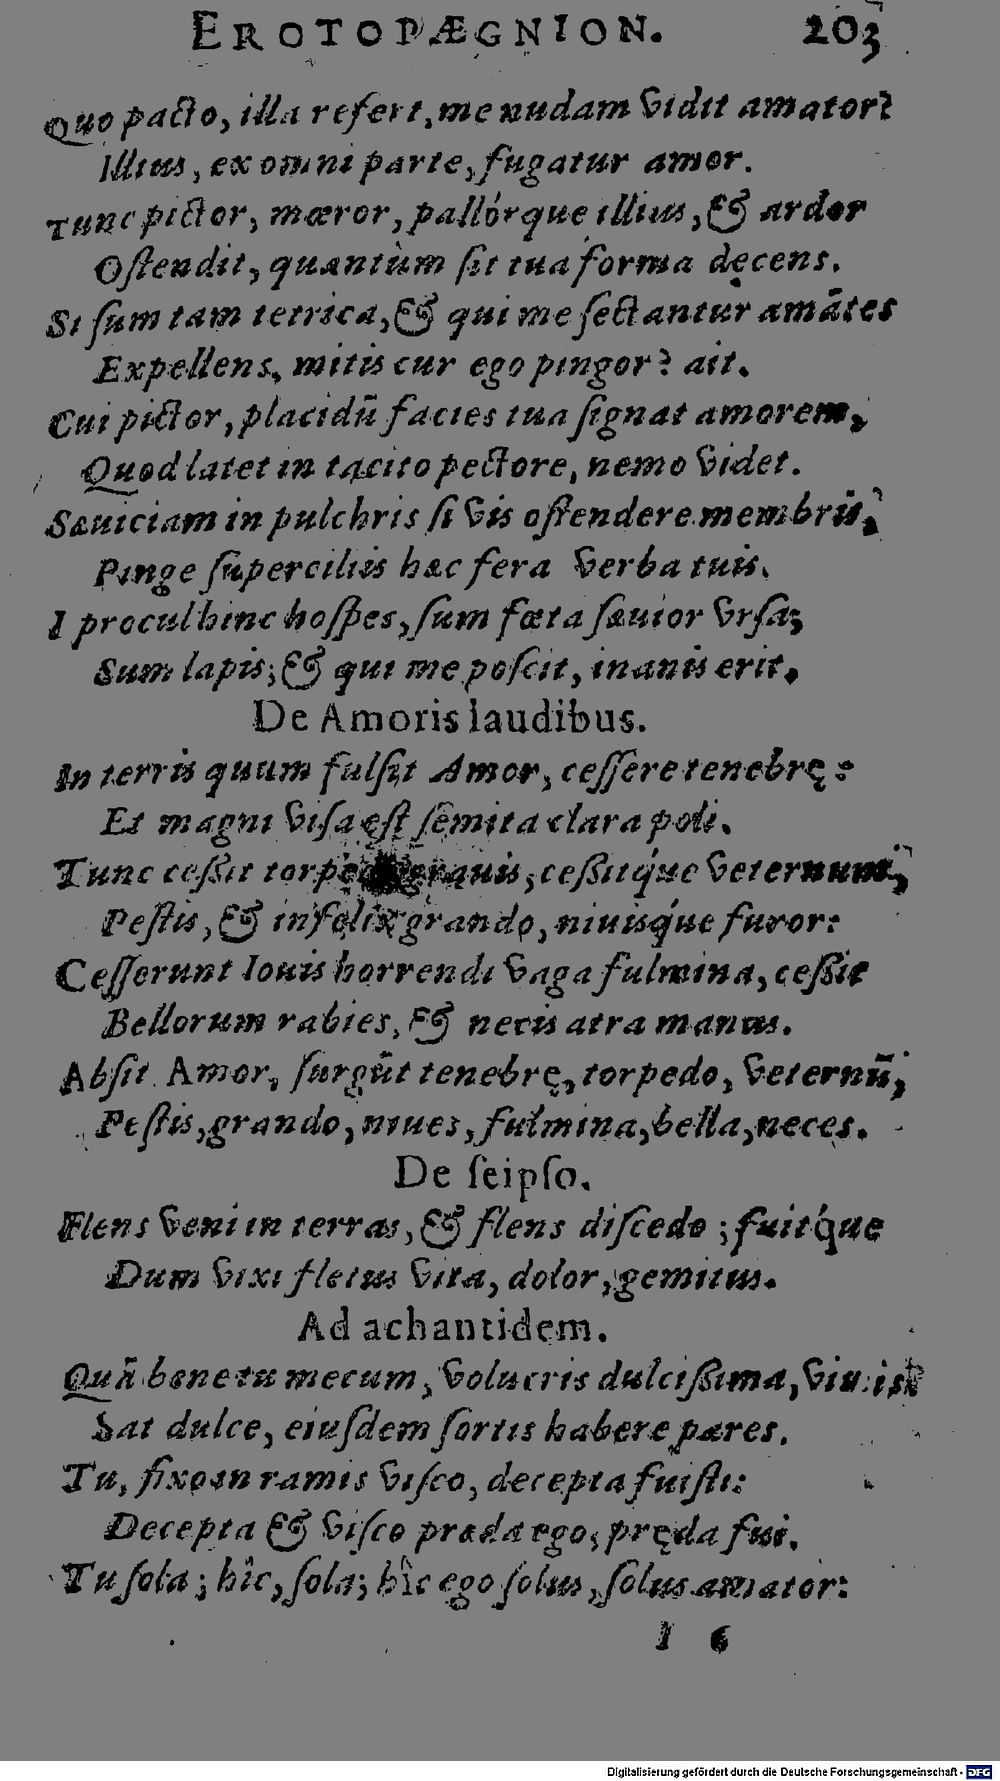 EROTOPÆGNION. 203
Quo pacto, illa refert, me nudam vidit amator?
Illius, ex omni parte, fugatur amor.
Tunc pictor, mæror, pallórque illius, & ardor
Oſtendit, quantùm ſit tua forma dęcens.
Si ſum tam tetrica, & qui me ſectantur amātes
Expellens, mitis cur ego pingor? ait.
Cui pictor, placidū facies tua ſignat amorem,
Quod latet in tacito pectore, nemo videt.
Sæuiciam in pulchris ſi vis oſtendere membris,
Pinge ſuperciliis hæc fera verba tuis.
I procul hinc hoſpes, ſum fœta ſæuior vrſa;
Sum lapis; & qui me poſcit, inanis erit.
De Amoris laudibus.
In terris quum fulſit Amor, ceſſere tenebrę:
Et magni viſa eſt ſemita clara poli.
Tunc ceſsit torpedo grauis, ceſsitq́ue veternum,
Peſtis, & infelix grando, niuisq́ue furor:
Ceſſerunt Iouis horrendi vaga fulmina, ceſsit
Bellorum rabies, & necis atra manus.
Abſit Amor, ſurgūt tenebrę, torpedo, veternū,
Peſtis, grando, niues, fulmina, bella, neces.
De ſeipſo.
Flens veni in terras, & flens diſcedo; fuitq́ue
Dum vixi fletus vita, dolor, gemitus.
Ad achantidem.
Quā bene tu mecum, volucris dulciſsima, viuis?
Sat dulce, eiuſdem ſortis habere pares.
Tu, fixo in ramis viſco, decepta fuiſti:
Decepta & viſco præda ego, pręda fui.
Tu ſola; hîc, ſola; hîc ego ſolus, ſolus amator:
I 6
Digitalisierung gefördert durch die Deutsche Forschungsgemeinschaft - DFG